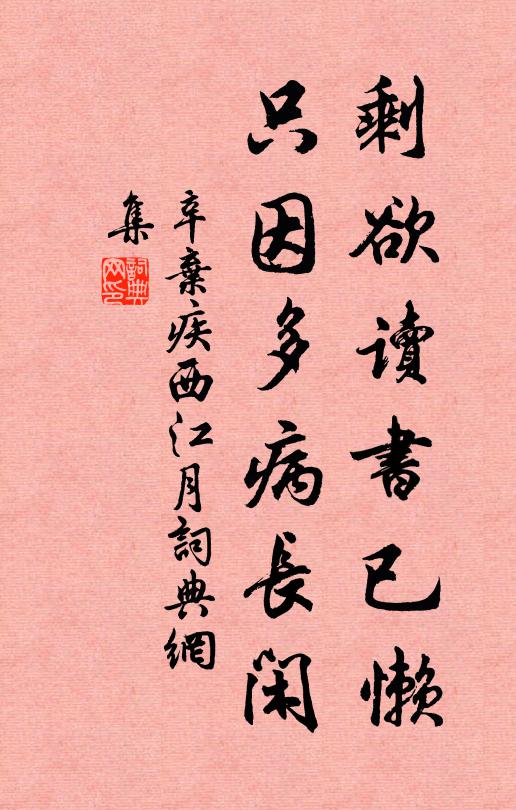 剩欲讀書已懶
只因多病長閑
辛棄疾西江月詞典網
集
詞典
网印